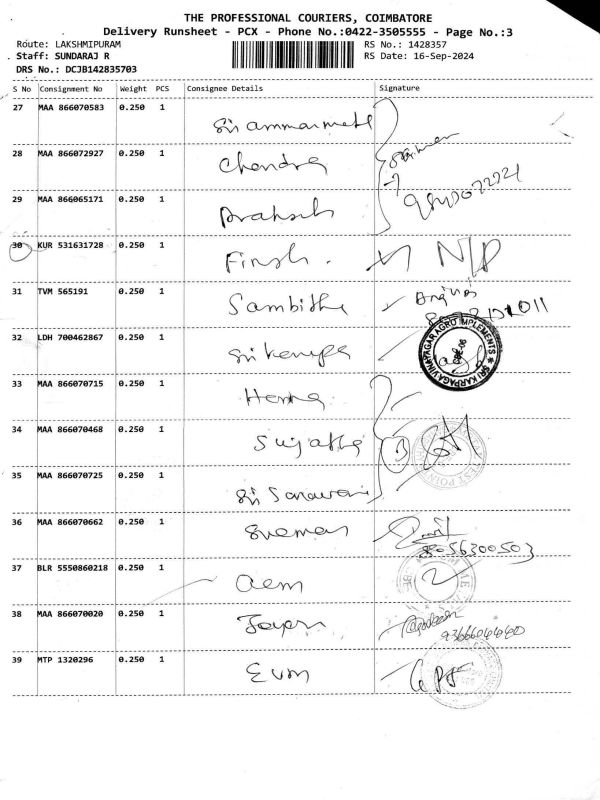 THE PROFESSIONAL COURIERS, COIMBATORE
Delivery Runsheet - PCX - Phone No.:0422-3505555 - Page No.:3
Route: LAKSHMIPURAM RS No.: 1428357
Staff: SUNDARAJ R RS Date: 16-Sep-2024
DRS No.: DCJB142835703
S No Consignment No Weight PCS Consignee Details Signature
27 MAA 866070583 0.250 1 Sri ammarmetl
28 MAA 866072927 0.250 1 Chandra
29 MAA 866065171 0.250 1 Prakash
30 KUR 531631728 0.250 1 N/D
31 TVM 565191 0.250 1 Sambitha
32 LDH 700462867 0.250 1
SRI KARPAGA VINAYAGAR AGRO IMPLEMENTS
33 MAA 866070715 0.250 1 Hema
34 MAA 866070468 0.250 1 Sujatha 3
35 MAA 866070725 0.250 1 Sri
36 MAA 866070662 0.250 1
8056300503
37 BLR 5550860218 0.250 1 aem 2
38 MAA 866070020 0.250 1
39 MTP 1320296 0.250 1